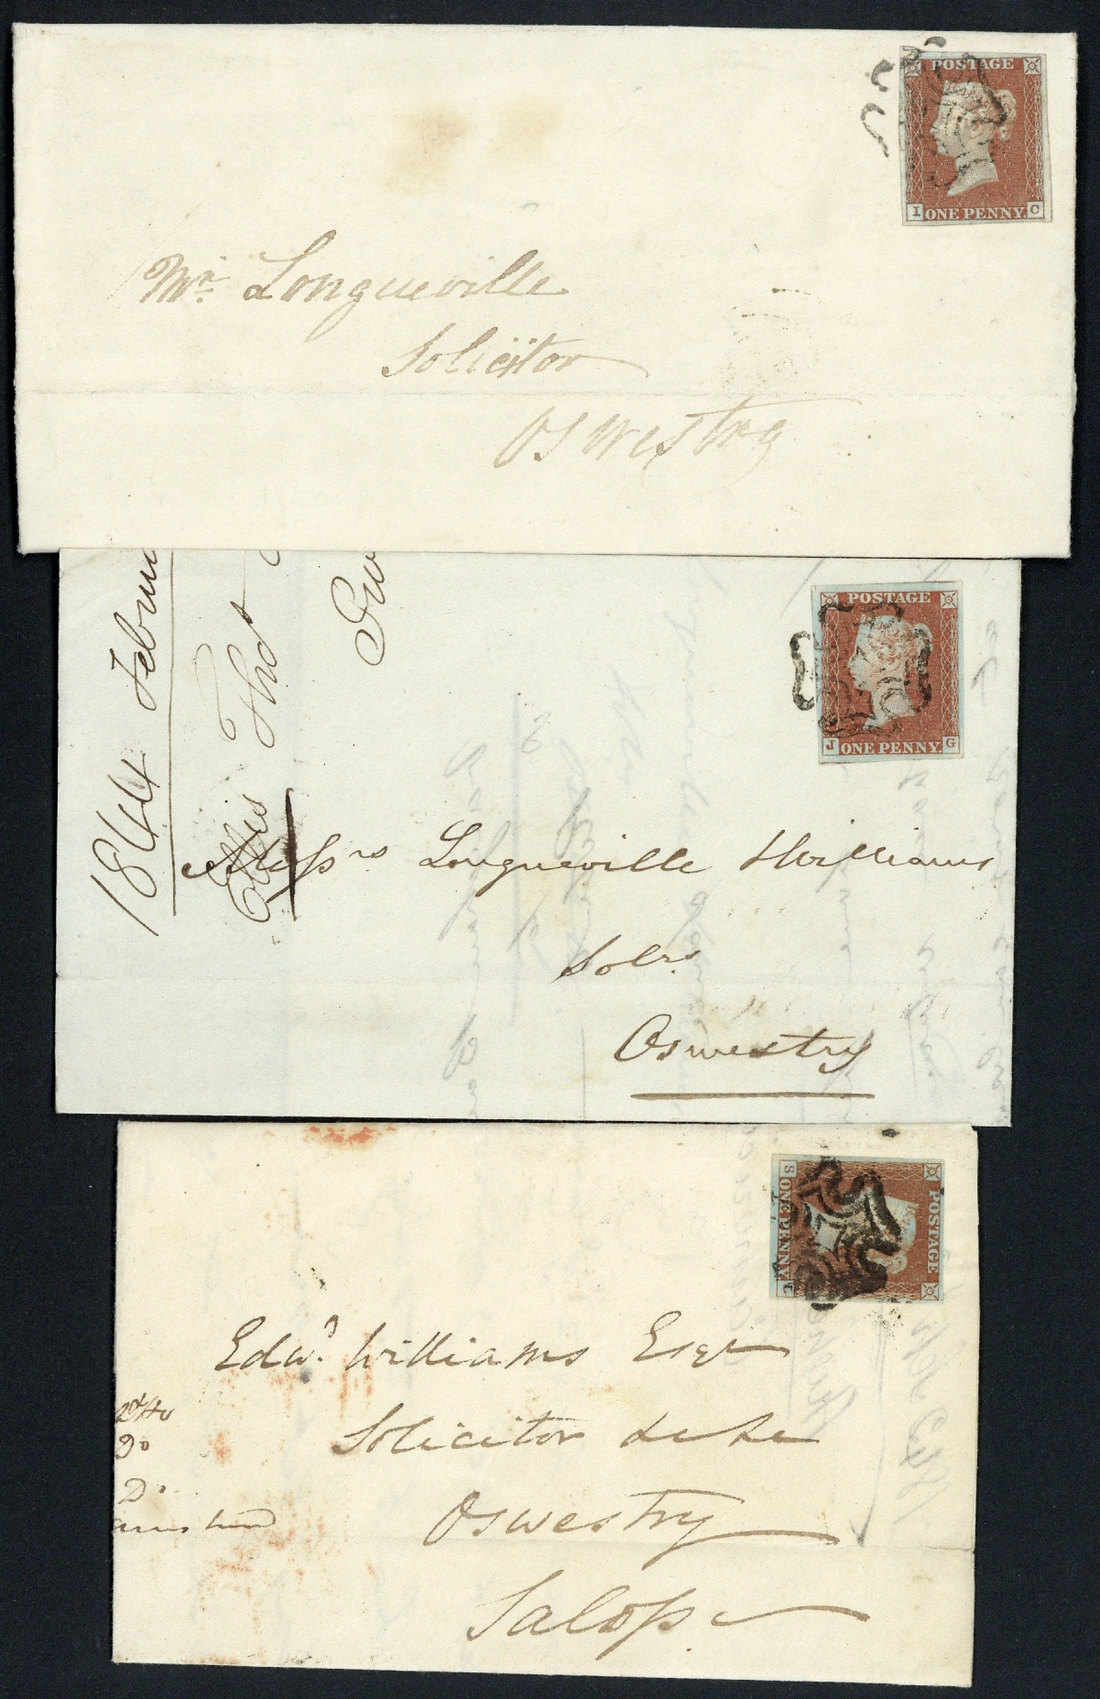 POSTAGE
I ONE PENNY. C
Mr. Longueville
Solicitor
Oswestry
1844 Febru
Ellis Thos
POSTAGE
J ONE PENNY. G
Messrs Longueville & Williams
Solrs.
Oswestry
POSTAGE
S ONE PENNY.
Edwd. Williams Esqr
Solicitor &c &c
Do
Do
Oswestry
Salop